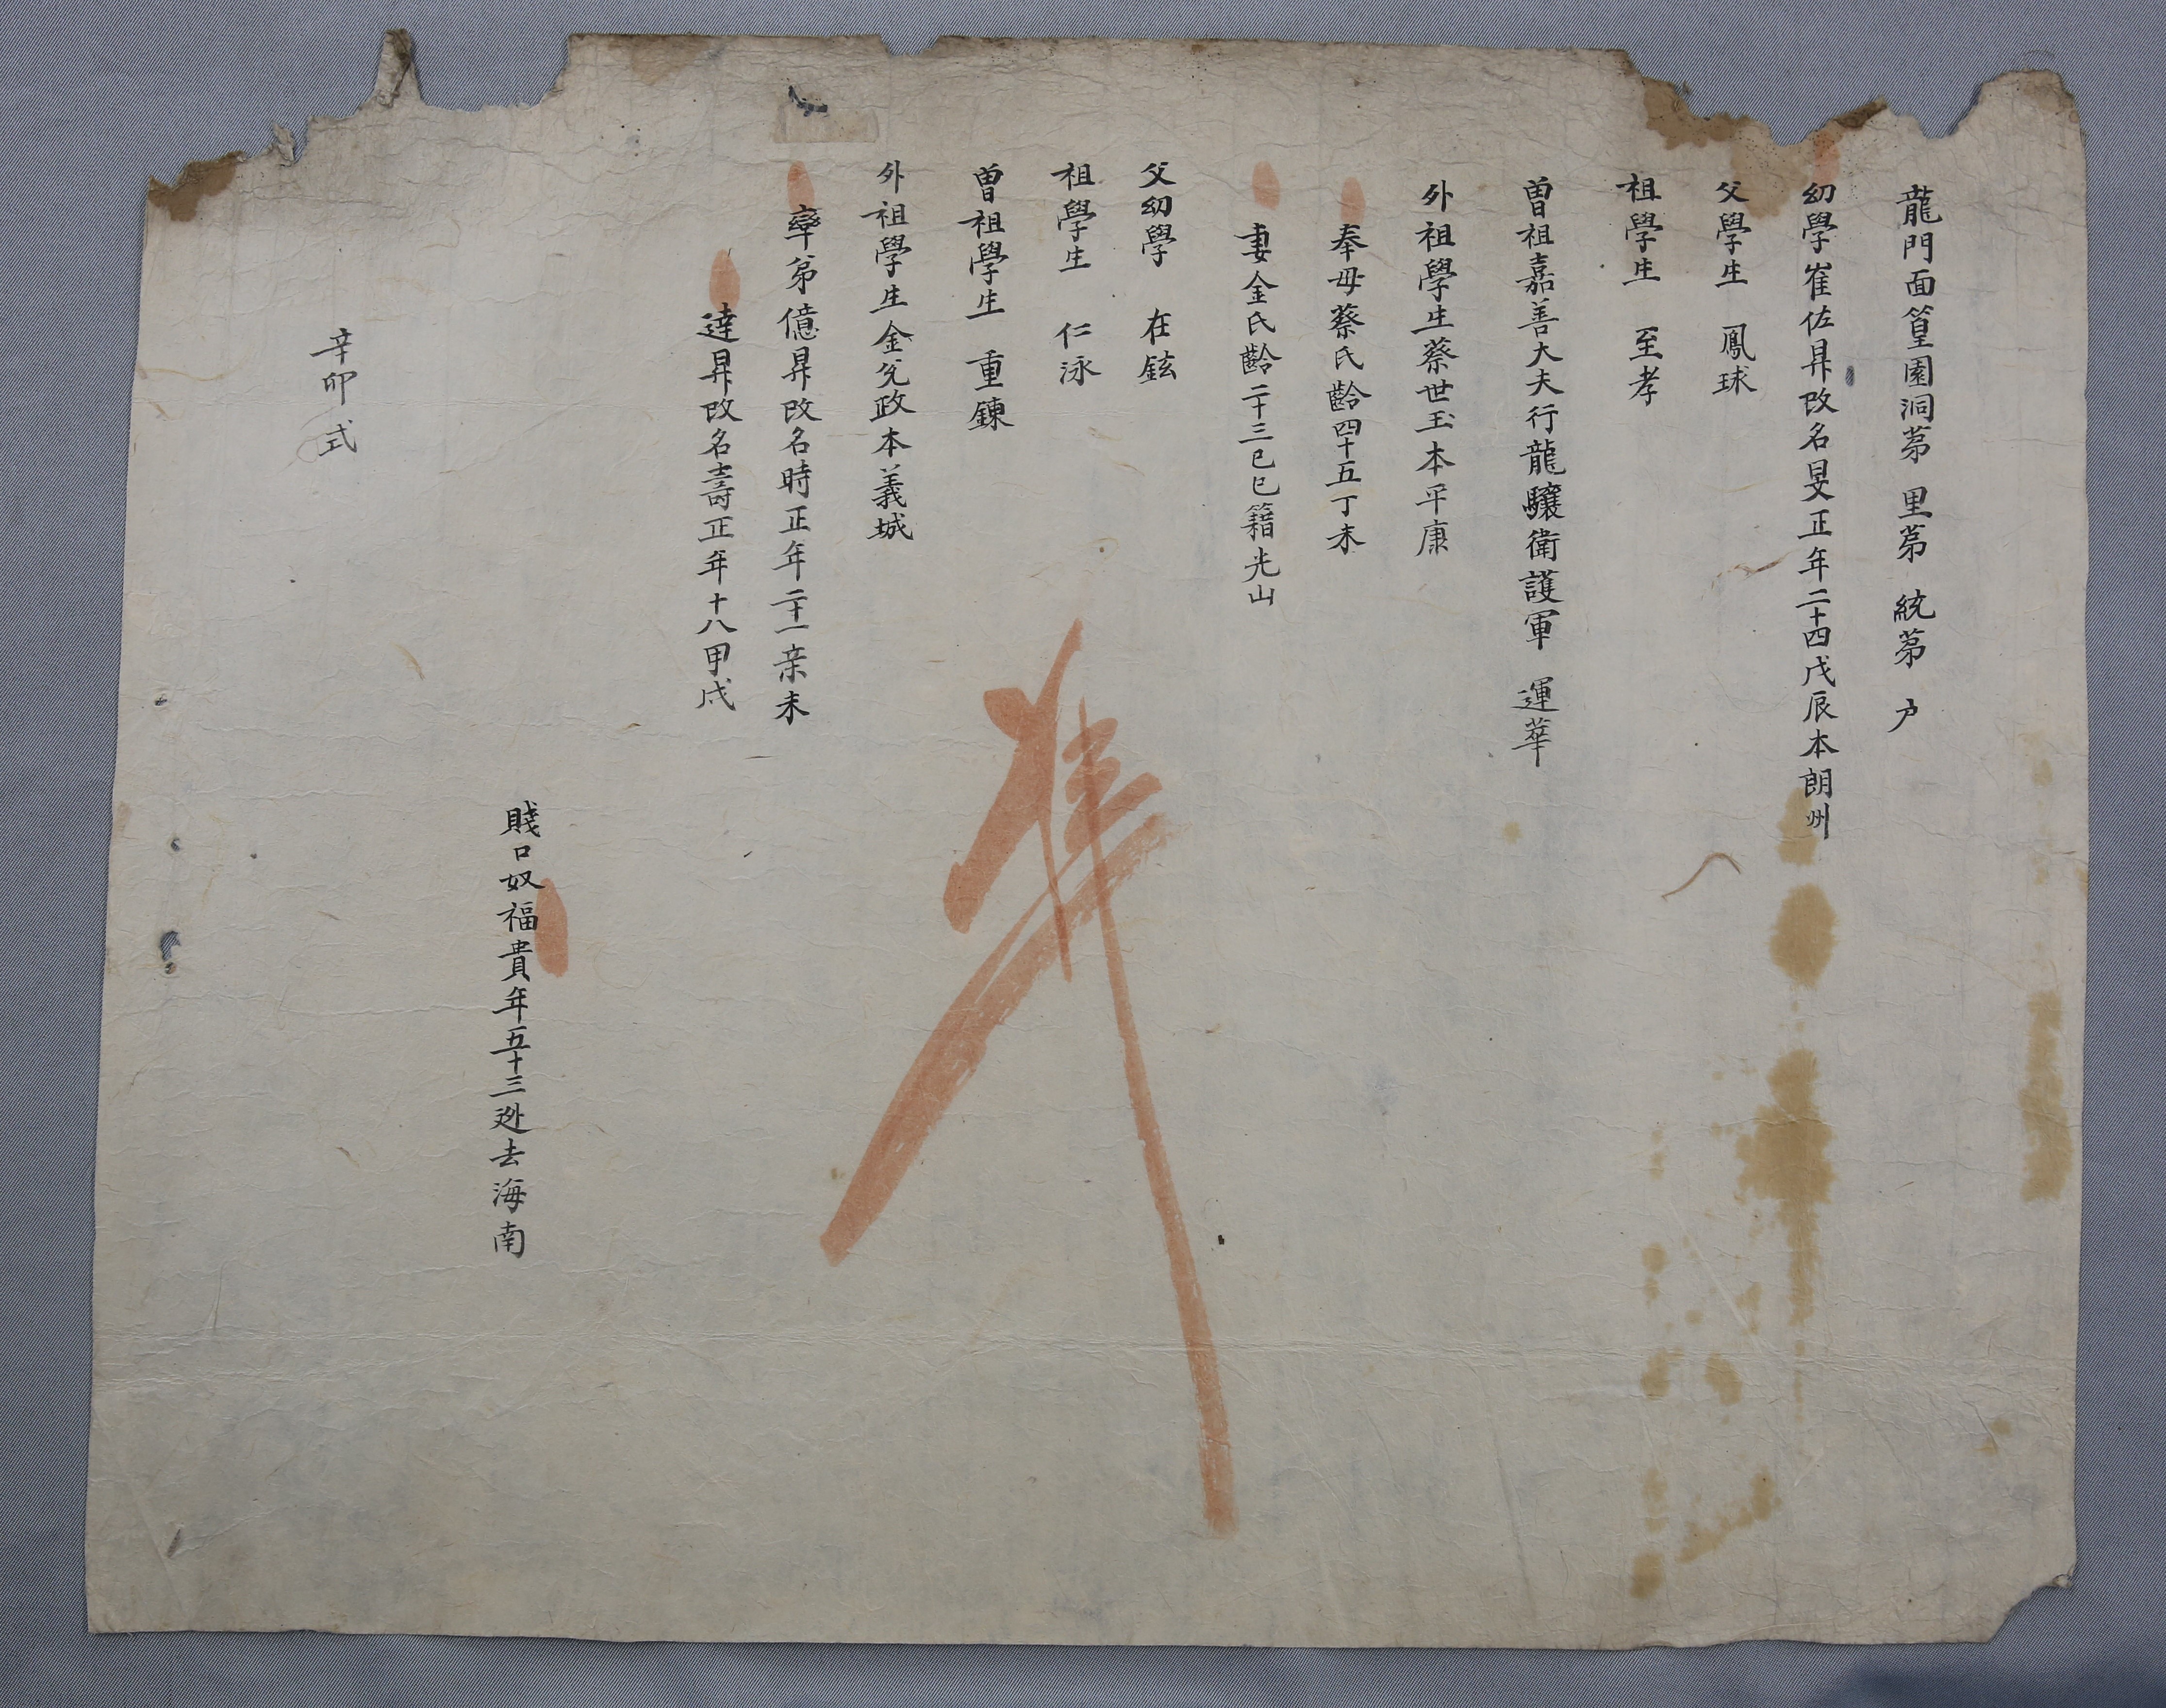 龍門面篁園洞第 里第 統第 戶
幼學崔佐昇改名旻正年二十四戊辰本朗州
父學生 鳳球
祖學生 至孝
曾祖嘉善大夫行龍驤衛護軍 運華
外祖學生蔡世玉本平康
奉母蔡氏齡四十五丁未
妻金氏齡二十三己巳籍光山
父幼學 在鉉
祖學生 仁泳
曾祖學生 重鍊
外祖學生金允政本義城
率弟億昇改名時正年二十一辛未
達昇改名壽正年十八甲戌
賤口奴福貴年五十三迯去海南
辛卯式
準